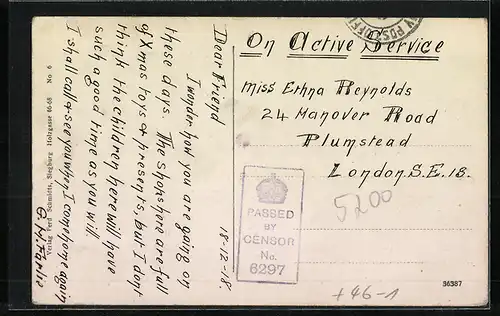 18-12-18
Dear Friend
I wonder how you are going on
these days. The shops here are full
of Xmas toys & presents, but I don't
think the children here will have
such a good time as you will
I shall call & see you when I come home again
On Active Service
Miss Ethna Reynolds
24 Manover Road
Plumstead
London. S.E. 18.
5200
PASSED
BY
CENSOR
No.
6297
+46-1
36387
Verlag Ferd Schmidts, Siegburg Holzgasse 66-68 No 6